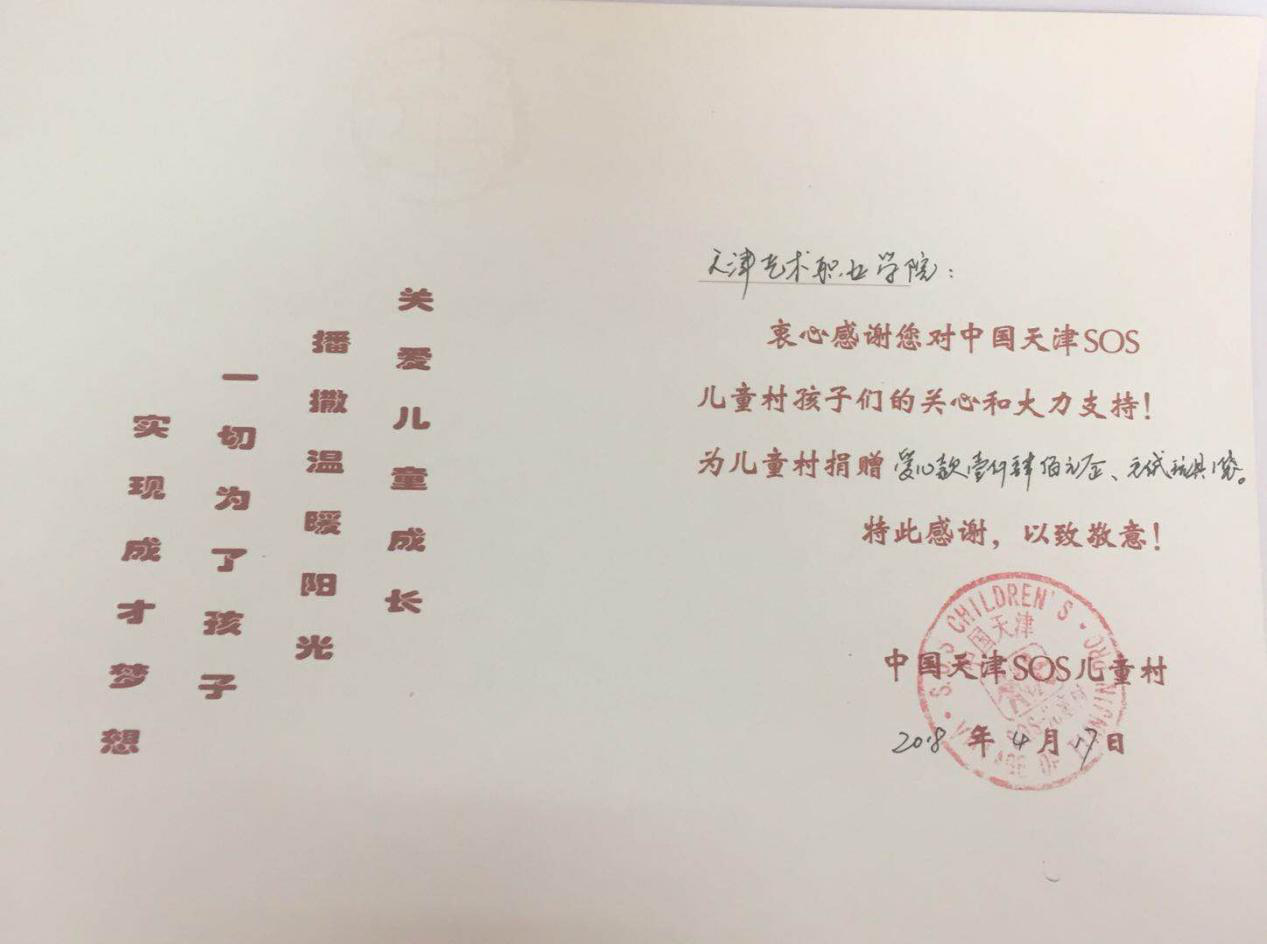 关爱儿童成长
播撒温暖阳光
一切为了孩子
实现成才梦想
天津艺术职业学院：
衷心感谢您对中国天津SOS
儿童村孩子们的关心和大力支持！
为儿童村捐赠 爱心款壹仟肆佰元正、 玩具1袋。
特此感谢，以致敬意！
中国天津SOS儿童村
2018 年 4 月 日
S.O.S CHILDREN'S
VILLAGE OF TIANJIN PRC
中国天津
SOS儿童村